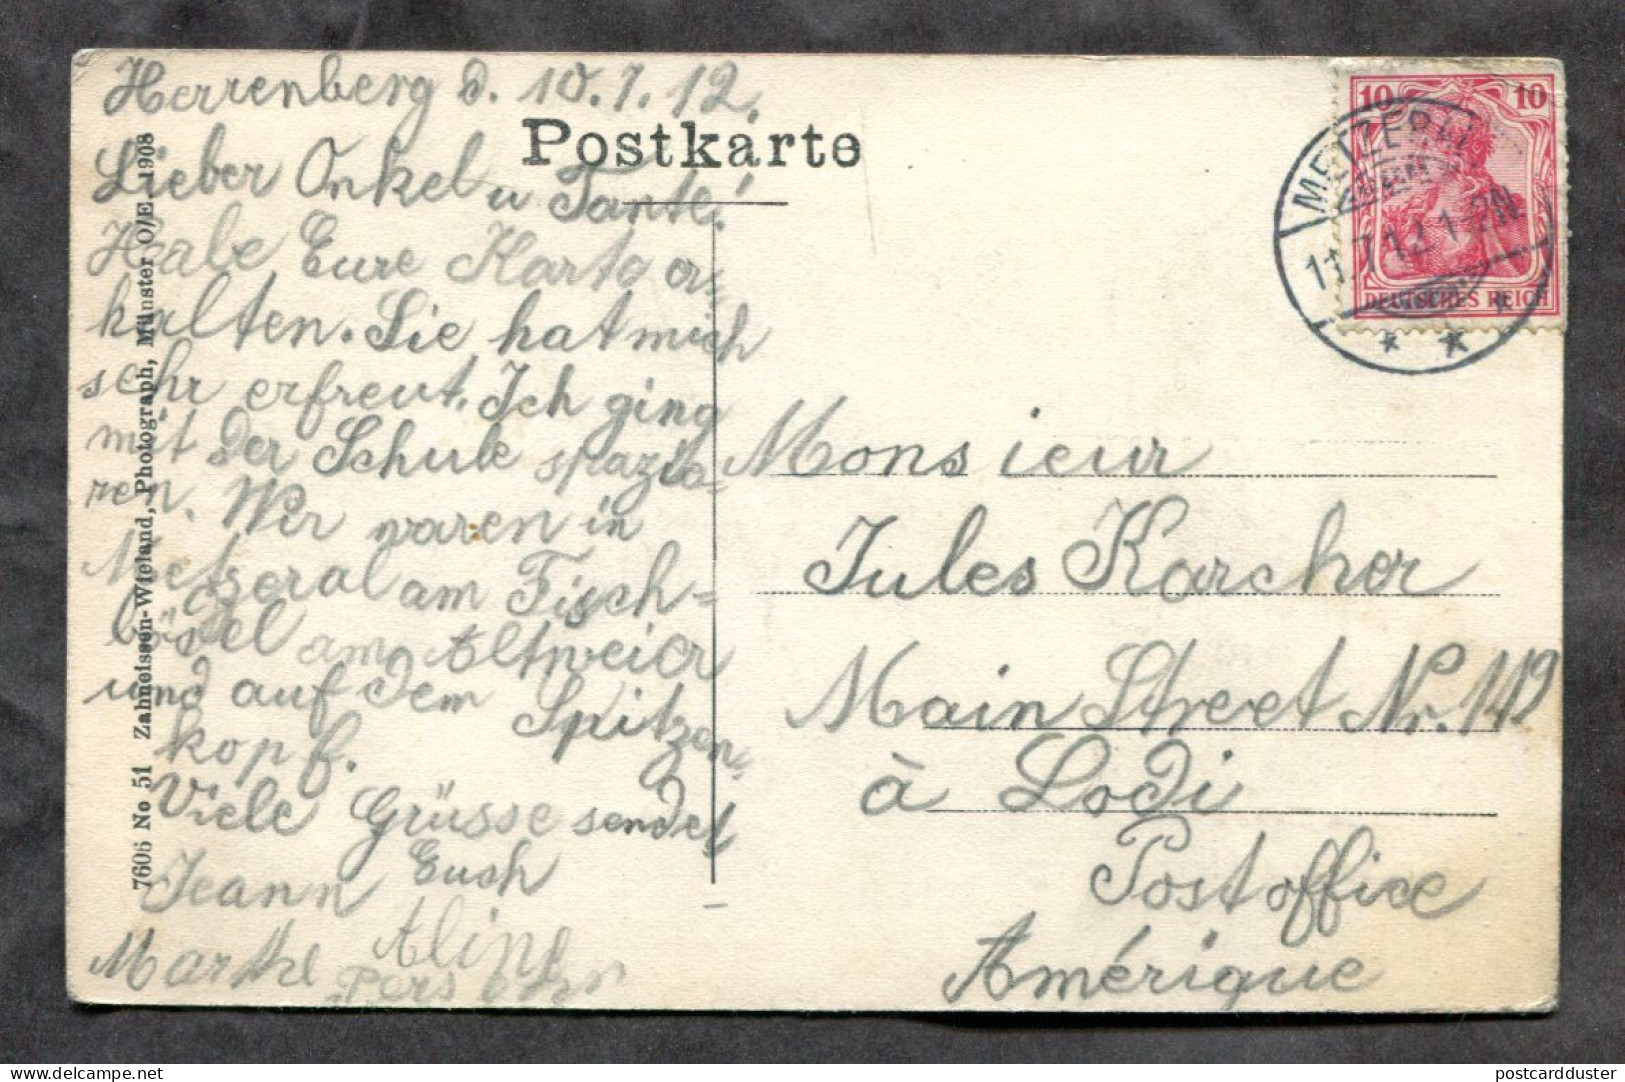 Herrenberg d. 10.7.12.
Postkarte
Lieber Onkel u Tante!
Habe Eure Karte er-
halten. Sie hat mich
sehr erfreut. Ich ging
mit der Schule spazie-
ren. Wir waren in
Metzeral am Fisch-
bösdel am Altweier
und auf dem Spitzen-
kopf.
Viele Grüsse sendet
Euch
Jeann
Aline
Marthe
7606 No 51 Zahneissen-Wieland, Photograph, Münster O/E. 1908
10 10
METZERAL
11.7.12.1-2N
DEUTSCHES REICH
* *
Monsieur
Jules Karcher
Main Street Nr. 112
à Lodi
Postoffice
Amérique
delcampe.net
postcardduster